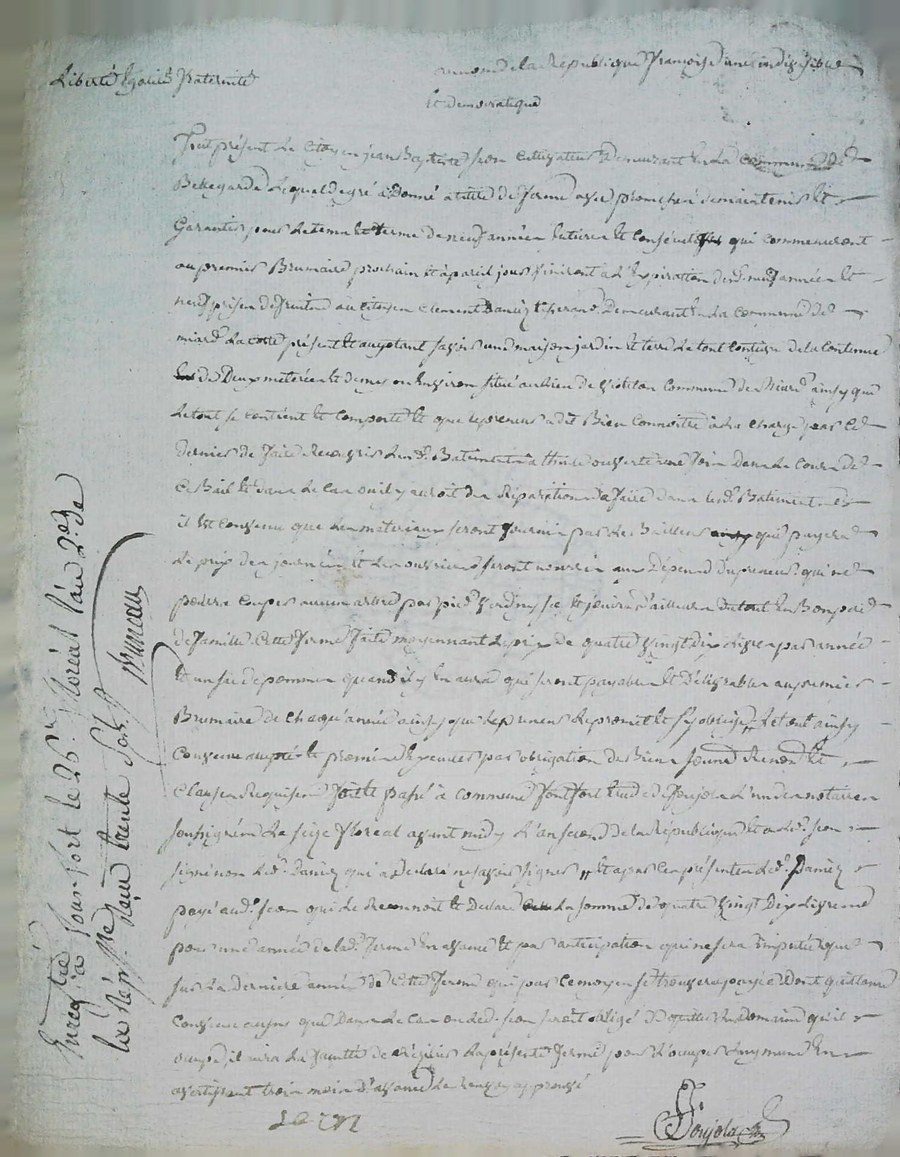 Liberté Egalité Fraternité
au nom de la République françoise une indivisible
Et democratique
fut présent Le Citoyen jean Baptiste jean Cultivateur Demeurant En La Commune de
Bellegarde Lequel de gré a Donné a titre de ferme avec promesse de maintenir Et
Garantir pour Le tems Et terme de neuf années Entieres Et Consécutives qui commenceront
au premier Brumaire prochain Et à pareil jour finiront à L'Expiration desd. neuf années Et
neuf prises de fruits au Citoyen Clement Demeurant En La Commune de
La Coste présent Et acceptant sçavoir une maison jardin Et terre Le tout Contigu de la Contenue
de Deux meterées Et demie ou Environ situé au Lieu de Commune de ainsy que
Le tout se Contient Et Comporte Et que Le preneur a dit Bien Connoitre à La Charge par Ce
dernier de faire Recouvrir Lesd. Batiments a thuile ouverte une fois Dans Le Cours de
Ce Bail Et Dans Le Cas ou il y auroit des Réparations a faire dans Lesd. Batiments
il Est Convenu que Les materiaux seront fournis par Le Bailleur qui payera
Le prix des journées Et Les ouvriers seront nourris aux Dépens du preneur qui ne
pourra Couper aucun arbre par pied Verd ny sec Et jouira d'ailleurs du tout En Bon pere
de famille Cette ferme faite moyennant Le prix de quatre Vingt Dix Livres par année
Et un sac de pommes quand il y En aura qui seront payables Et Délivrables au premier
Brumaire de Chaque année ainsy que Le preneur Le promet Et s'y oblige, Le tout ainsy
Convenu accepté Et promis Exécuter par obligation de Biens soumis Renon. Et
Clauses Requises fait Et passé à Commune Fontfort Etude de Poujola L'un des notaires
soussignés Le seize floreal avant midy L'an second de la République Et a Led. jean
signé non Led. qui a Déclaré ne sçavoir signer Et après Ces présentes Led.
payé aud. jean qui Le Reconnoit Et Declare La somme de quatre Vingt Dix Livres
pour une année de lad. ferme En avance Et par anticipation qui ne sera imputée que
sur La derniere année de Cette ferme qui par Ce moyen se trouvera payée Dont quittance
Convenu aussy que Dans Le Cas ou Led. jean seroit obligé de quitter Le Domaine qu'il
occupe, il aura La faculté de Résilier La présente ferme pour L'occuper Luy meme En
avertissant trois mois D'avance Le renvoy approuvé
jean
Poujola
Enregistré à fonfort le 26 floréal l'an 2e. de
la Rép. Reçu trente sols. Bruneau